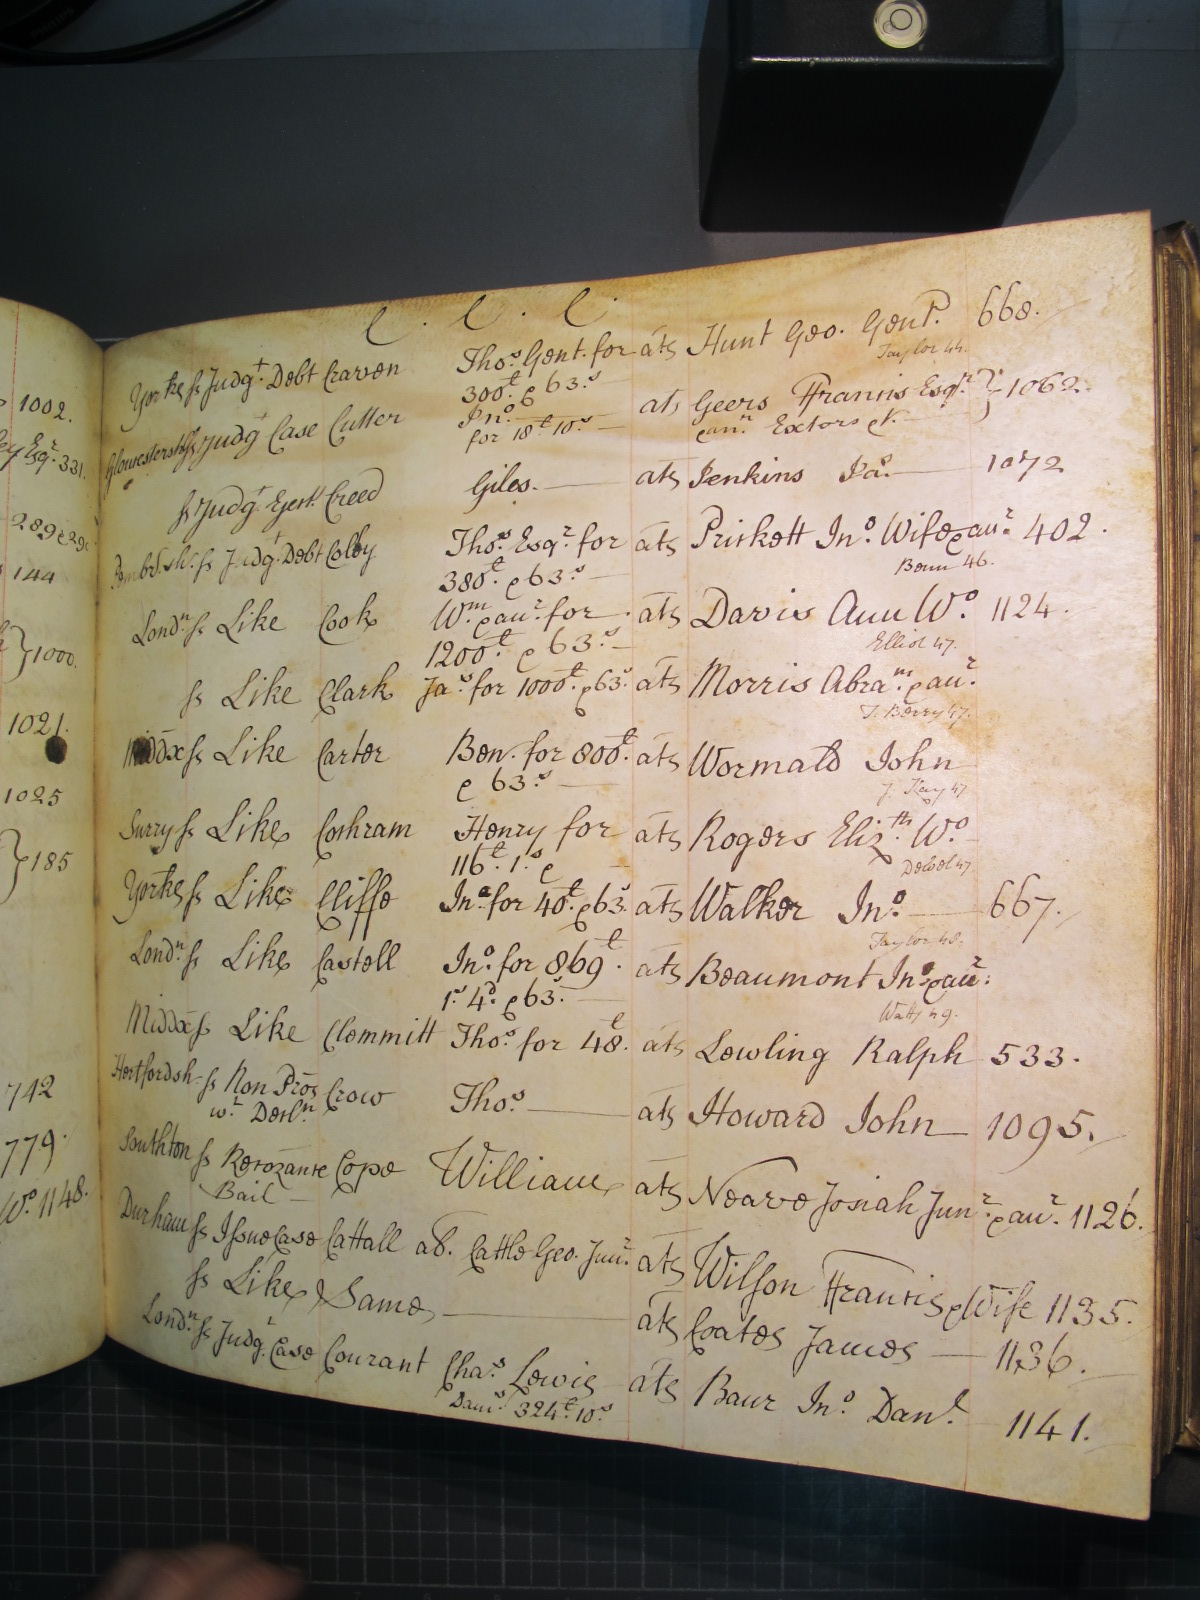 1002.
Esqr. 331.
289 & 290
144
}1000.
1021.
1025
}185
742
779.
Wo. 1148.
C. C. C.
Yorks ss Judgt. Debt Craven Thos. Gent. for ats Hunt Geo. Gent. 668.
300£ & 63s. Taylor 44.
Gloucestersh ss Judgt Case Cutter Jno. ats Geers Francis Esqr. & } 1062.
for 18£ 10s. — anr. Extors &c.
ss Judgt. Ejectt. Creed Giles. — ats Jenkins Ja. — 1072
Pembr. sh. ss Judgt. Debt Colby Thos. Esqr. for ats Prickett Jno. Wife & anr. 402.
380£ & 63s. — Benn 46.
Londn. ss Like Cook Wm. & anr. for ats Davis Ann Wo. 1124.
1200£. & 63s. — Elliot 47.
ss Like Clark Jas. for 1000£. & 63s. ats Morris Abram. & anr.
T. Berry 47.
Middx ss Like Carter Ben. for 800£. ats Wormald John
& 63s. — J. Kay 47
Surry ss Like Cochram Henry for ats Rogers Elizth. Wo.
116£. 1s. & —
Yorks ss Like Cliffe Jno. for 40£. & 63s. ats Walker Jno. — 667.
Taylor 48.
Londn. ss Like Castell Jno. for 869£. ats Beaumont Jno. & anr.
1s. 4d. & 63s. — Watts 49.
Middx ss Like Clemmitt Thos. for 48£. ats Lewling Ralph 533.
Hertfordsh ss Non Pros Crow Thos. — ats Howard John — 1095.
wt. Decln.
Southton ss Recozance Cope William ats Neave Josiah Junr. & anr. 1126.
Bail —
Durham ss Issue Case Cattall als. Cattle Geo. Junr. ats Wilson Francis & Wife 1135.
ss Like Same — ats Coates James — 1136.
Londn. ss Judgt. Case Courant Chas. Lewis ats Baur Jno. Danl. 1141.
Dams. 324£. 10s.